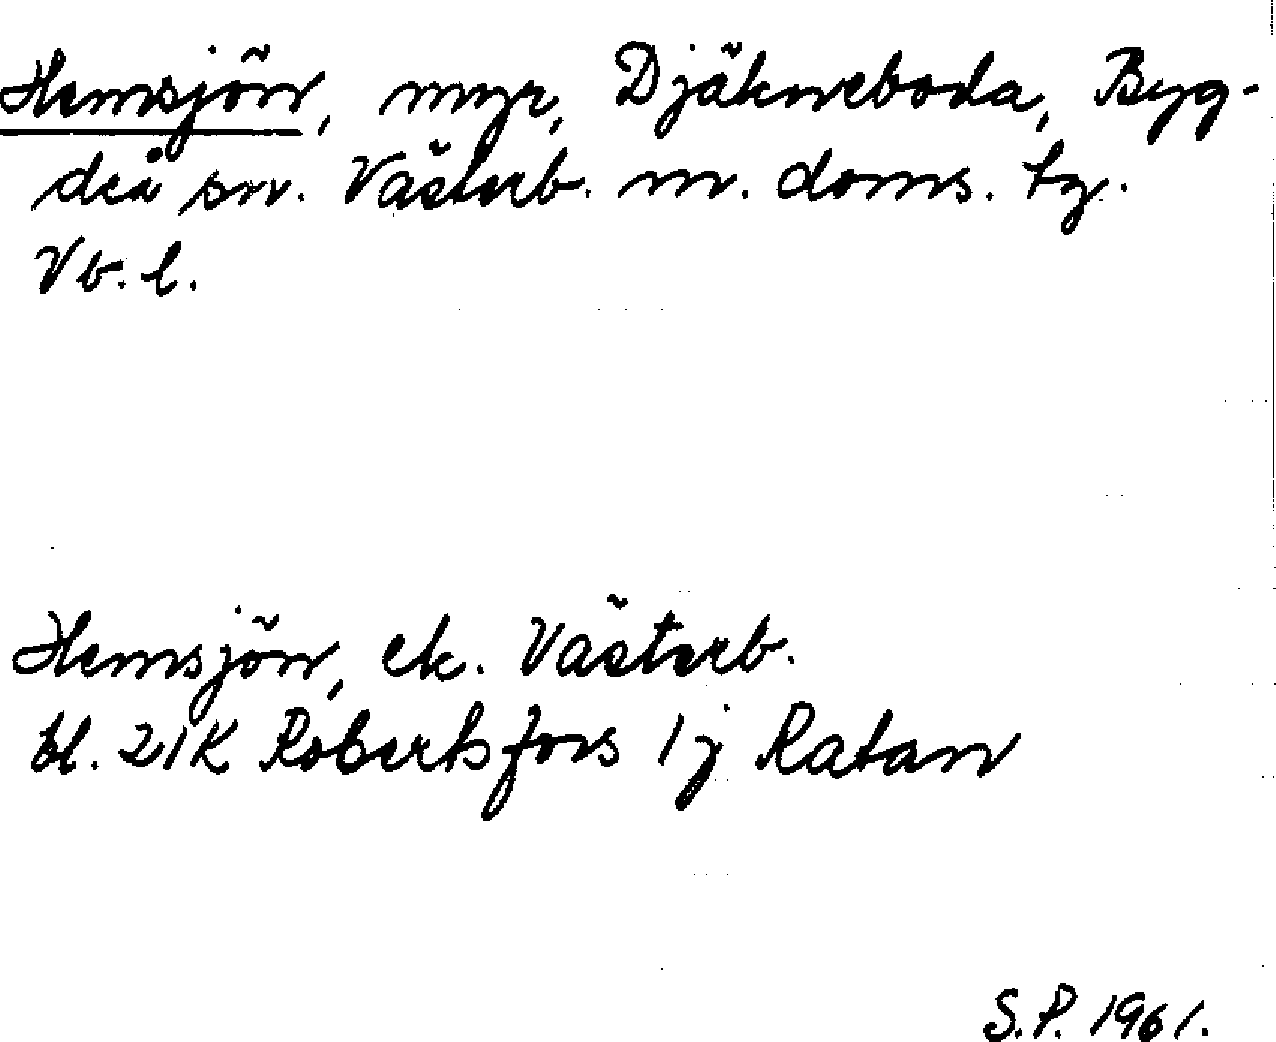 Hemsjön, myr, Djäkneboda, Byg-
deå sn. Västerb. m. doms. tg.
Vb. l.
Hemsjön, ek. Västerb.
bl. 21K Robertsfors 1j Ratan
S.P. 1961.